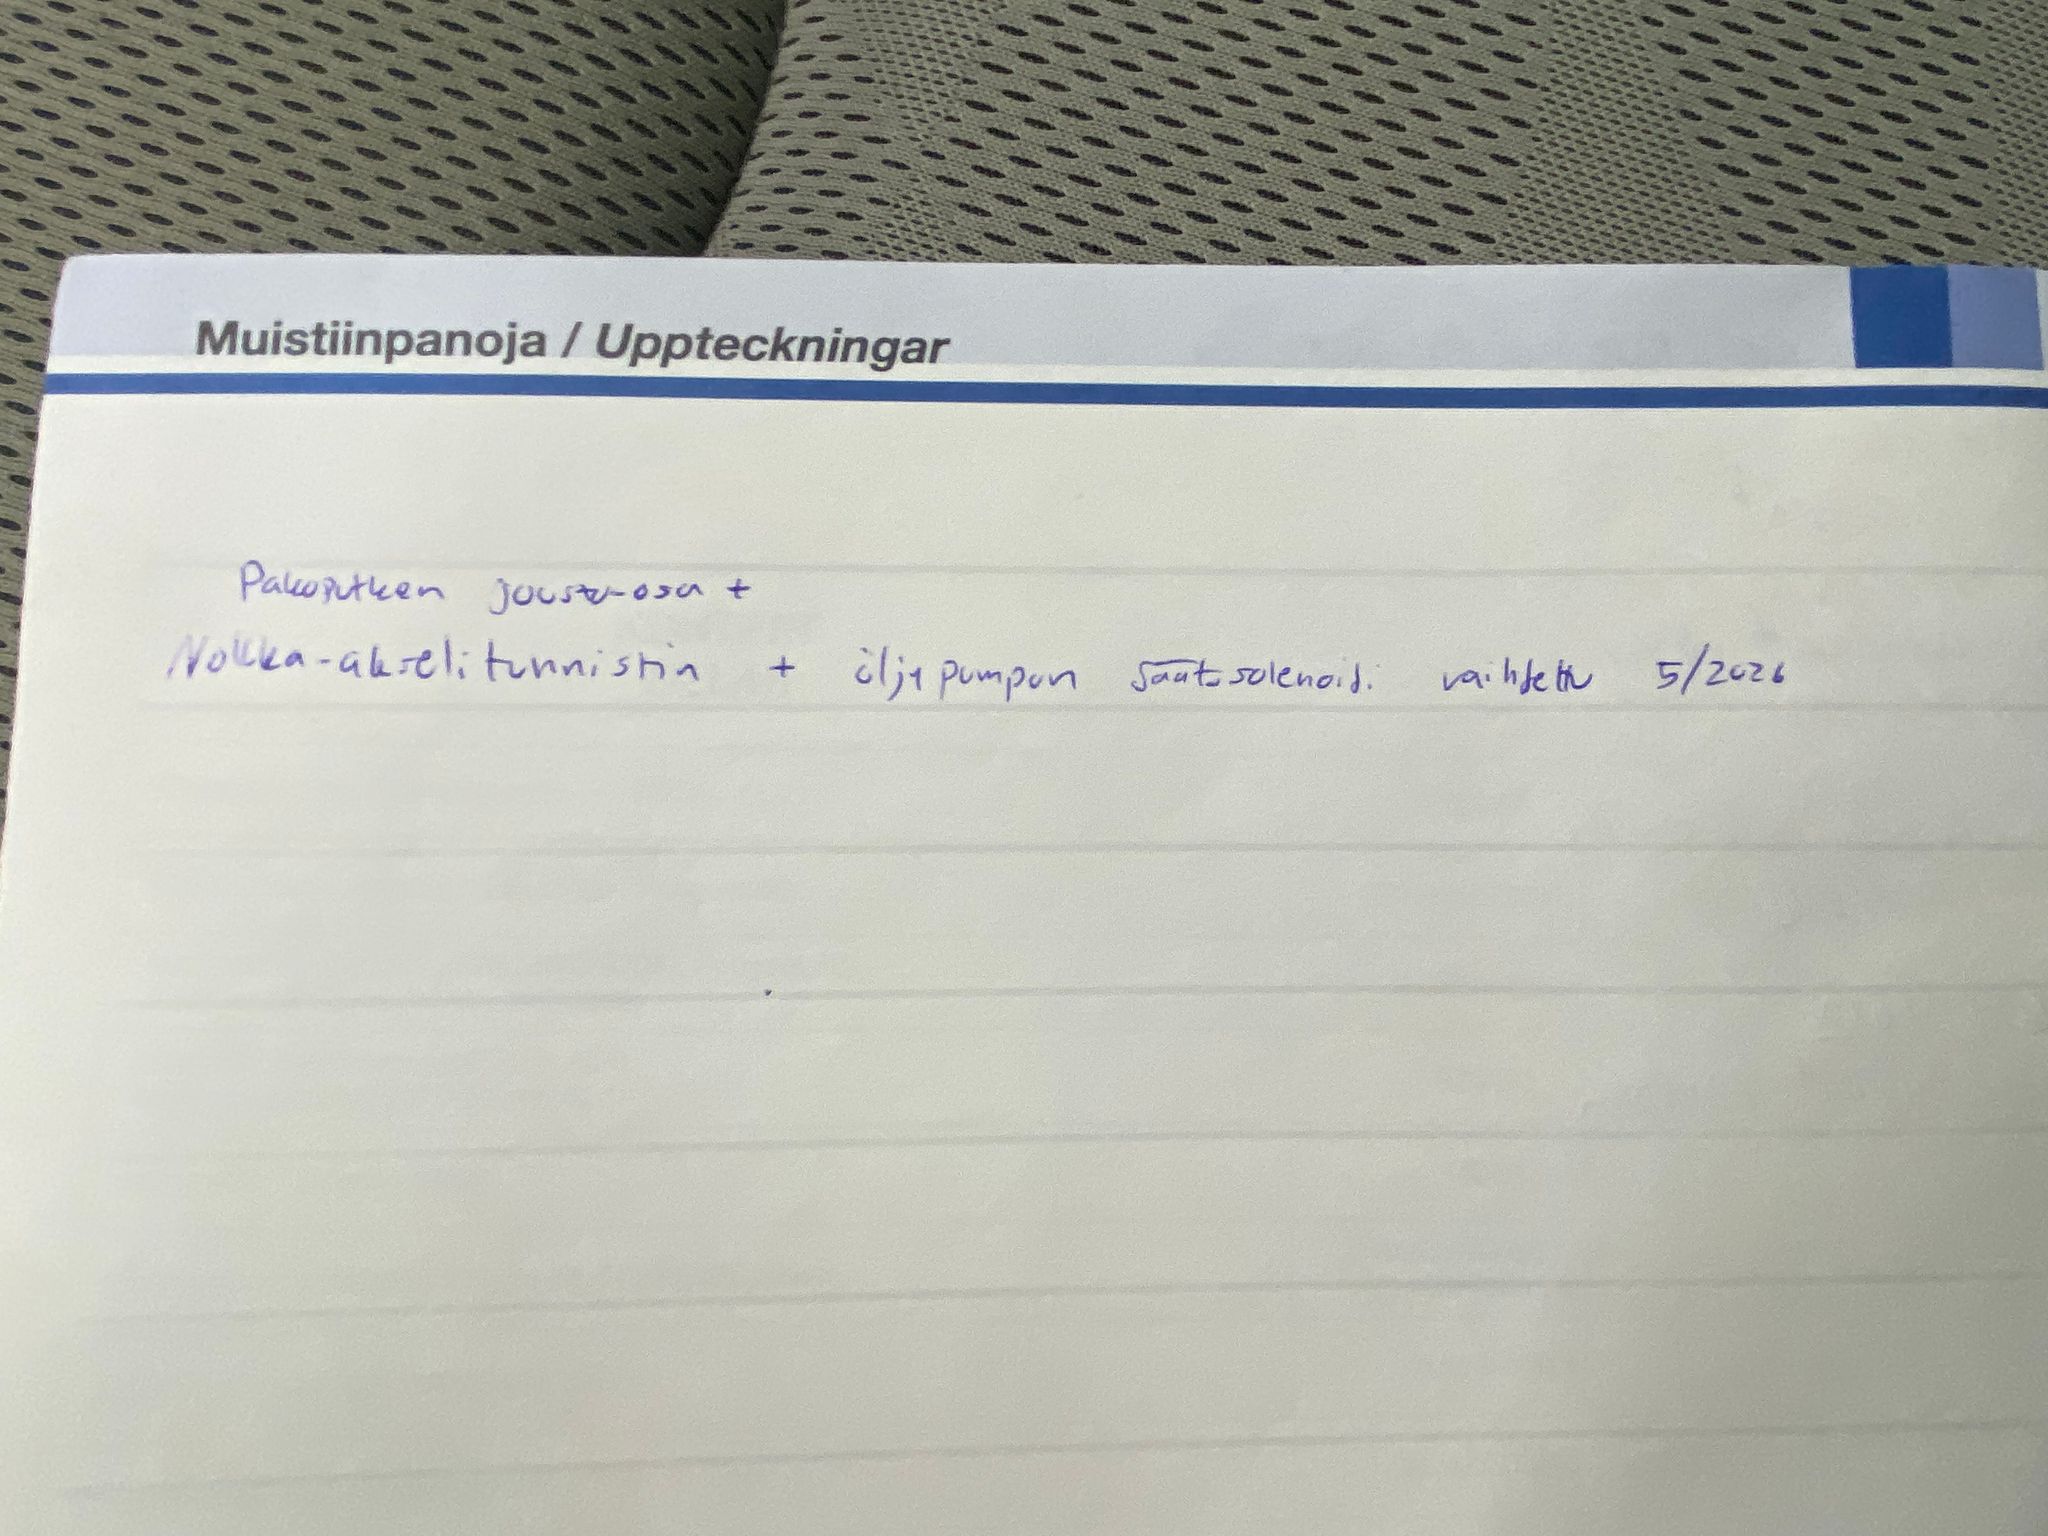 Muistiinpanoja / Uppteckningar
Pakoputken jousto-osa +
Nokka-akselitunnistin + öljypumpun säätösolenoidi vaihdettu 5/2026